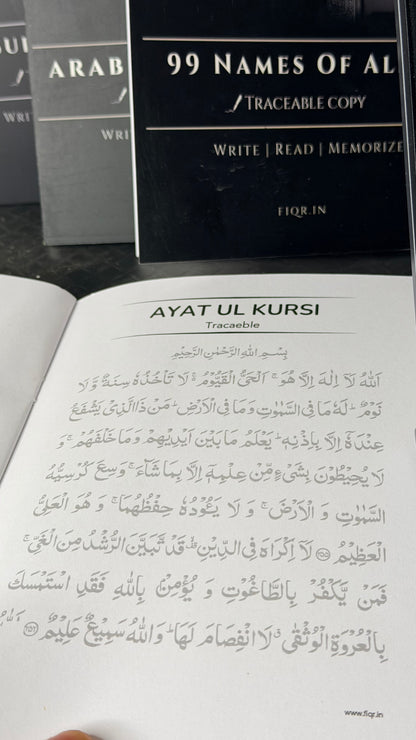 ARAB
WRI
WRI
99 NAMES OF AL
TRACEABLE COPY
WRITE | READ | MEMORIZE
FIQR.IN
AYAT UL KURSI
Tracaeble
بِسْمِ اللهِ الرَّحْمٰنِ الرَّحِيْمِ
اَللهُ لَآ اِلٰهَ اِلَّا هُوَ ۚ اَلْحَىُّ الْقَيُّوْمُ ۚ لَا تَاْخُذُهٗ سِنَةٌ وَّ لَا
نَوْمٌ ؕ لَهٗ مَا فِى السَّمٰوٰتِ وَ مَا فِى الْاَرْضِ ؕ مَنْ ذَا الَّذِىْ يَشْفَعُ
عِنْدَهٗۤ اِلَّا بِاِذْنِهٖ ؕ يَعْلَمُ مَا بَيْنَ اَيْدِيْهِمْ وَ مَا خَلْفَهُمْ ۚ وَ
لَا يُحِيْطُوْنَ بِشَىْءٍ مِّنْ عِلْمِهٖۤ اِلَّا بِمَا شَآءَ ۚ وَسِعَ كُرْسِيُّهُ
السَّمٰوٰتِ وَ الْاَرْضَ ۚ وَ لَا يَـُٔوْدُهٗ حِفْظُهُمَا ۚ وَ هُوَ الْعَلِىُّ
الْعَظِيْمُ ﴿۲۵۵﴾ لَآ اِكْرَاهَ فِى الدِّيْنِ ۙ قَدْ تَّبَيَّنَ الرُّشْدُ مِنَ الْغَىِّ ۚ
فَمَنْ يَّكْفُرْ بِالطَّاغُوْتِ وَ يُؤْمِنْۢ بِاللهِ فَقَدِ اسْتَمْسَكَ
بِالْعُرْوَةِ الْوُثْقٰى ۗ لَا انْفِصَامَ لَهَا ؕ وَ اللهُ سَمِيْعٌ عَلِيْمٌ ﴿۲۵۶﴾ اَللهُ
www.fiqr.in